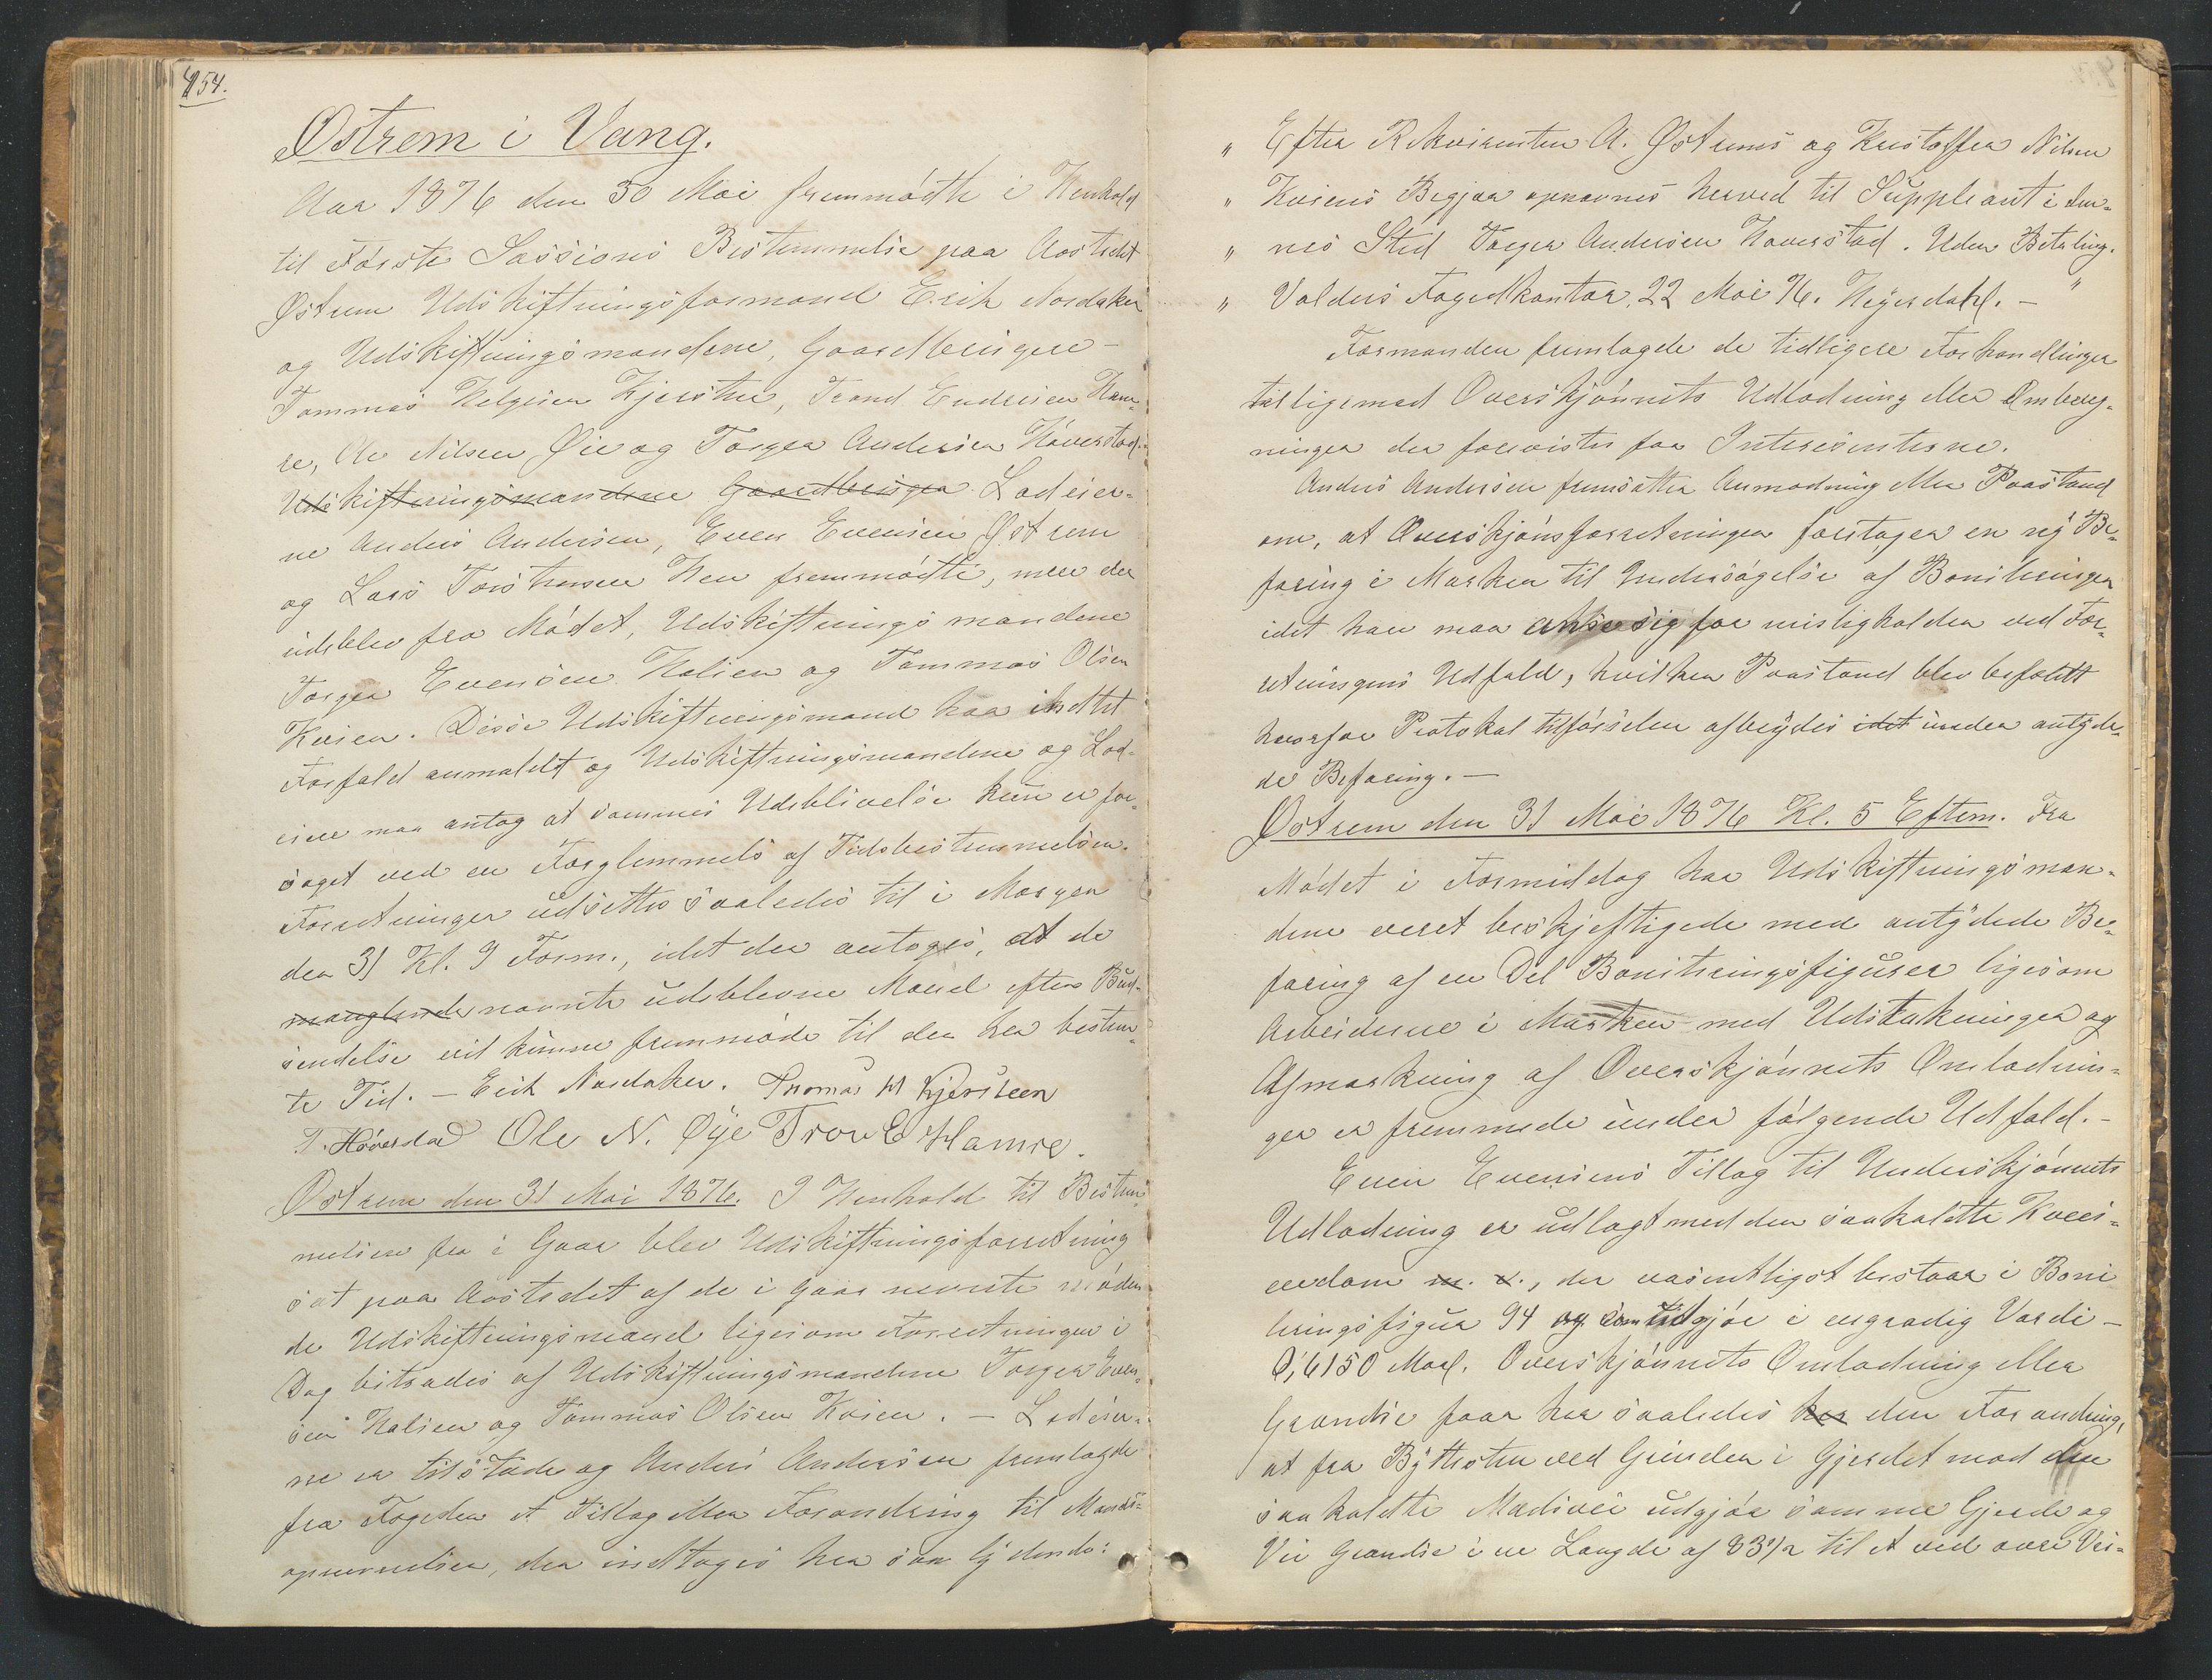 454.
Østrem i Vang.
Aar 1876 den 30 Mai fremmødte i Henhold
til Første Sassions Bestemmelse paa Aastedet
Østrem Udskiftningsformand Erik Nordaker
og Udskiftningsmandene, Gaardbrugere
Tommas Helgesen Kjersten, Trond Endresen Ham-
re, Ole Nilsen Øie og Torger Andersen Høverstad.
Udskiftningsmandene Gaardbruger Lodeier-
ne Anders Andersen, Even Evensen Østrem
og Lars Torstensen Hen fremmødte, men der
udeblev fra Mødet, Udskiftningsmandene
Torger Evensen Halien og Tommas Olsen
Kvien. Disse Udskiftningsmænd har ikke
Forfald anmeldt og Udskiftningsmandene og Lod-
eiere maa antag at sammes Udeblivelse kun er for-
saget ved en Forglemmels af Tidsbestemmelsen.
Forretningen udsettes saaledes til i Morgen
den 31 Kl. 9 Form., idet der antoges, at de
manglende navnte udeblevne Mænd efter Bud-
sendelse vil kunne fremmøde til den her bestem-
te Tid. – Erik Nordaker. Thomas H Kjersteen
T. Høverstad Ole N. Øye Tron E Hamre.
Østrem den 31 Mai 1876. I Henhold til Bestem-
melsen fra i Gaar blev Udskiftningsforretning
sat paa Aastedet af de i Gaar nevnte møden-
de Udskiftningsmænd ligesom Forretningen i
Dag bitrædes af Udskiftningsmandene Torger Even-
sen Halien og Tommas Olsen Kvien. – Lodeier-
ne er tilstede og Anders Andersen fremlagde
fra Fogden et Tillag eller Forandring til Mands-
opnevnelsen, der indtages her saa lydende:
" Efter Rekvirenten A. Østrems og Kristoffer Nilsen
" Kviens Begjær opnavnes herved til Suppleant i den-
" nes Sted Torger Andersen Haverstad. Uden Betaling.
" Valders Fogedkontor, 22 Mai 76. Heyerdahl. – "
Formanden fremlagde de tidligere Forhandlinger
tilligemed Overskjønnets Udlodning eller Ombereg-
ninger der forevistes for Interesenterne.
Anders Andersen fremsatte Anmodning eller Paastand
om, at Overskjønsforretningen foretager en ny Be-
faring i Marken til Undersøgelse af Boniteringen
idet han maa anse sig for misligholden ved For-
retningens Udfald, hvilken Paastand blev befaldt
hvorfor Protokol tilførselen afbrydes idet under antyde-
de Befaring. –
Østrem den 31 Mai 1876 Kl. 5 Eftem. Fra
Mødet i Formiddag har Udskiftningsman-
dene veret beskjeftigede med antydede Be-
faring af en Del Boniteringsfigurer ligesom
Arbeiderne i Marken med Udstakninger og
Afmerkning af Overskjønnets Omlodnin-
ger er fremmede under følgende Udfald. –
Even Evensens Tillag til Underskjønnets
Udlodning er udlagt med den saakaldte Kvei-
eerdam m. v., der vasentligst bestaar i Boni
teringsfigur 94 og som udgjør i engradig Vardi –
0,6150 Maal. Overskjønnets Omlodning eller
Grandse faar her saaledes her den Forandring,
at fra Byttesten ved Grinden i Gjerdet mod den
saakaldte Madivei udgjør samme Gjerde og
Vei Grandse i en Langde af 83½ til et ved øvre Vei-